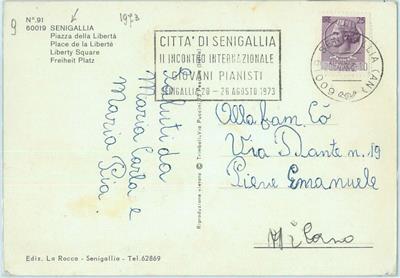 9
1973
N°.91
60019 SENIGALLIA
Piazza della Libertà
Place de la Liberté
Liberty Square
Freiheit Platz
CITTA' DI SENIGALLIA
II INCONTRO INTERNAZIONALE
GIOVANI PIANISTI
SENIGALLIA 20 - 26 AGOSTO 1973
25
60019 SENIGALLIA (AN)
Saluti da
Maria Carla e
Maria Pia
Riproduzione vietata
Alla fam.
Via Dante n. 19
Pieve Emanuele
Milano
Ediz. La Rocca - Senigallia - Tel. 62869